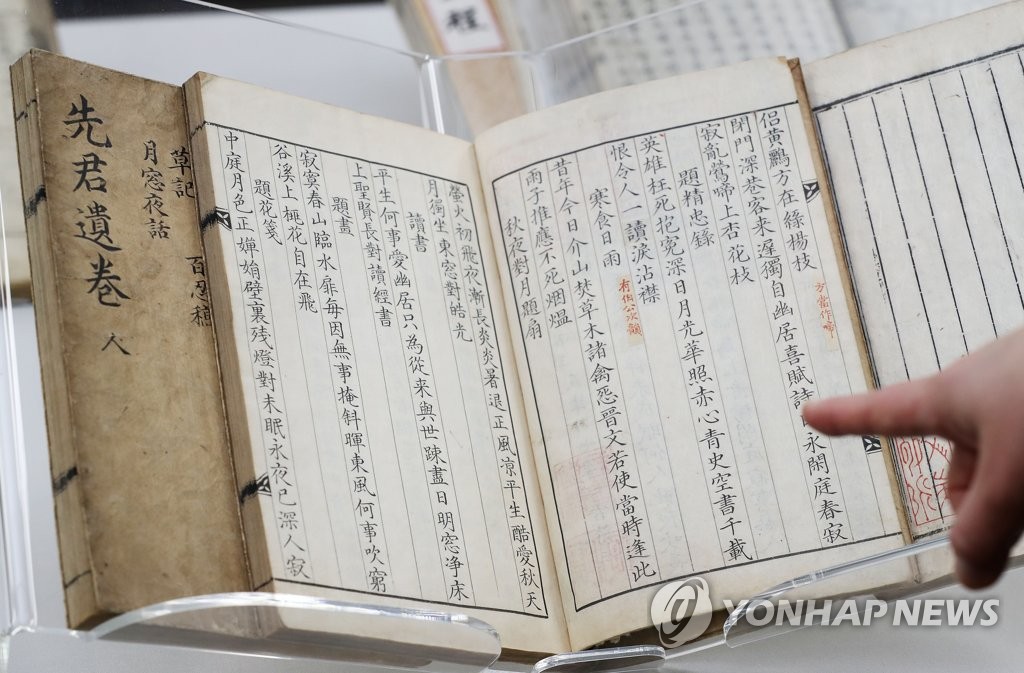 侣黃鸝方在綠楊枝
方當作啼
閉門深巷客來遲獨自幽居喜賦詩日永閑庭春寂
寂亂鶯啼上杏花枝
題精忠錄
英雄枉死抱寃深日月光華照赤心青史空書千載
恨令人一讀淚沾襟
寒食日雨
昔年今日介山焚草木諸禽恐晉文若使當時逢此
雨子推應不死烟熅
秋夜對月題扇
螢火初飛夜漸長炎炎暑退正風凉平生酷愛秋天
月獨坐東窓對皓光
讀書
平生何事愛幽居只為從来與世踈晝日明窓净床
上聖賢長對讀經書
題畫
寂寞春山臨水扉每因無事掩斜暉東風何事吹窮
谷溪上榧花自在飛
題花箋
中庭月色正嬋娟壁裏残燈對未眠永夜已深人寂
草記 百忍稿
月窓夜話
先君遺卷 人
程
YONHAP NEWS